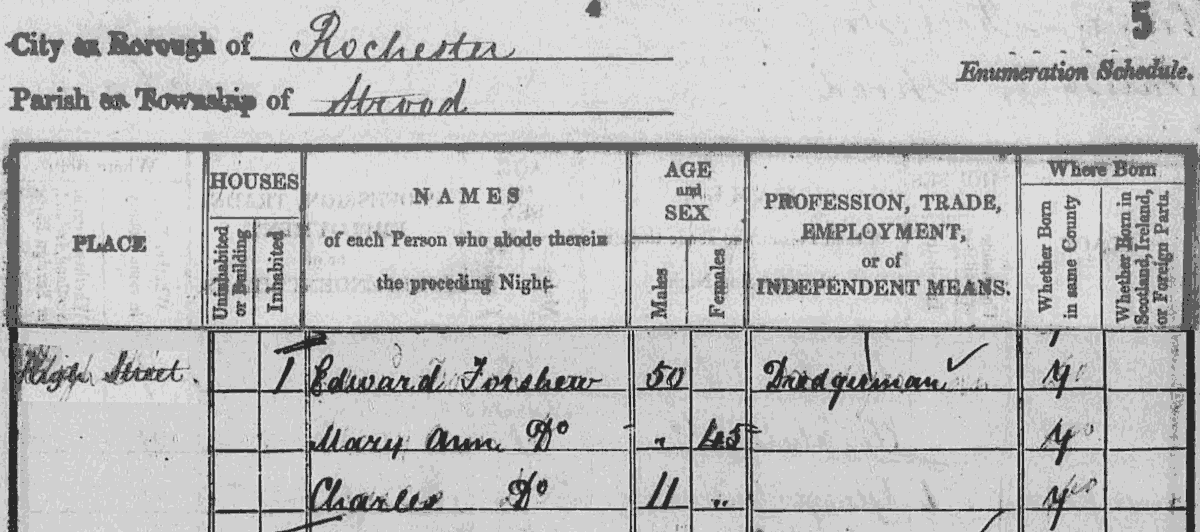 4
5
City or Borough of Rochester
Enumeration Schedule.
Parish or Township of Strood
PLACE
HOUSES
Uninhabited or Building
Inhabited
NAMES
of each Person who abode therein
the preceding Night.
AGE
and
SEX
Males
Females
PROFESSION, TRADE,
EMPLOYMENT,
or of
INDEPENDENT MEANS.
Where Born
Whether Born in same County
Whether Born in Scotland, Ireland, or Foreign Parts.
High Street. 1 Edward Forshew 50 Dredgerman ✓ y
Mary Ann Do " 45 y
Charles Do 11 " yes